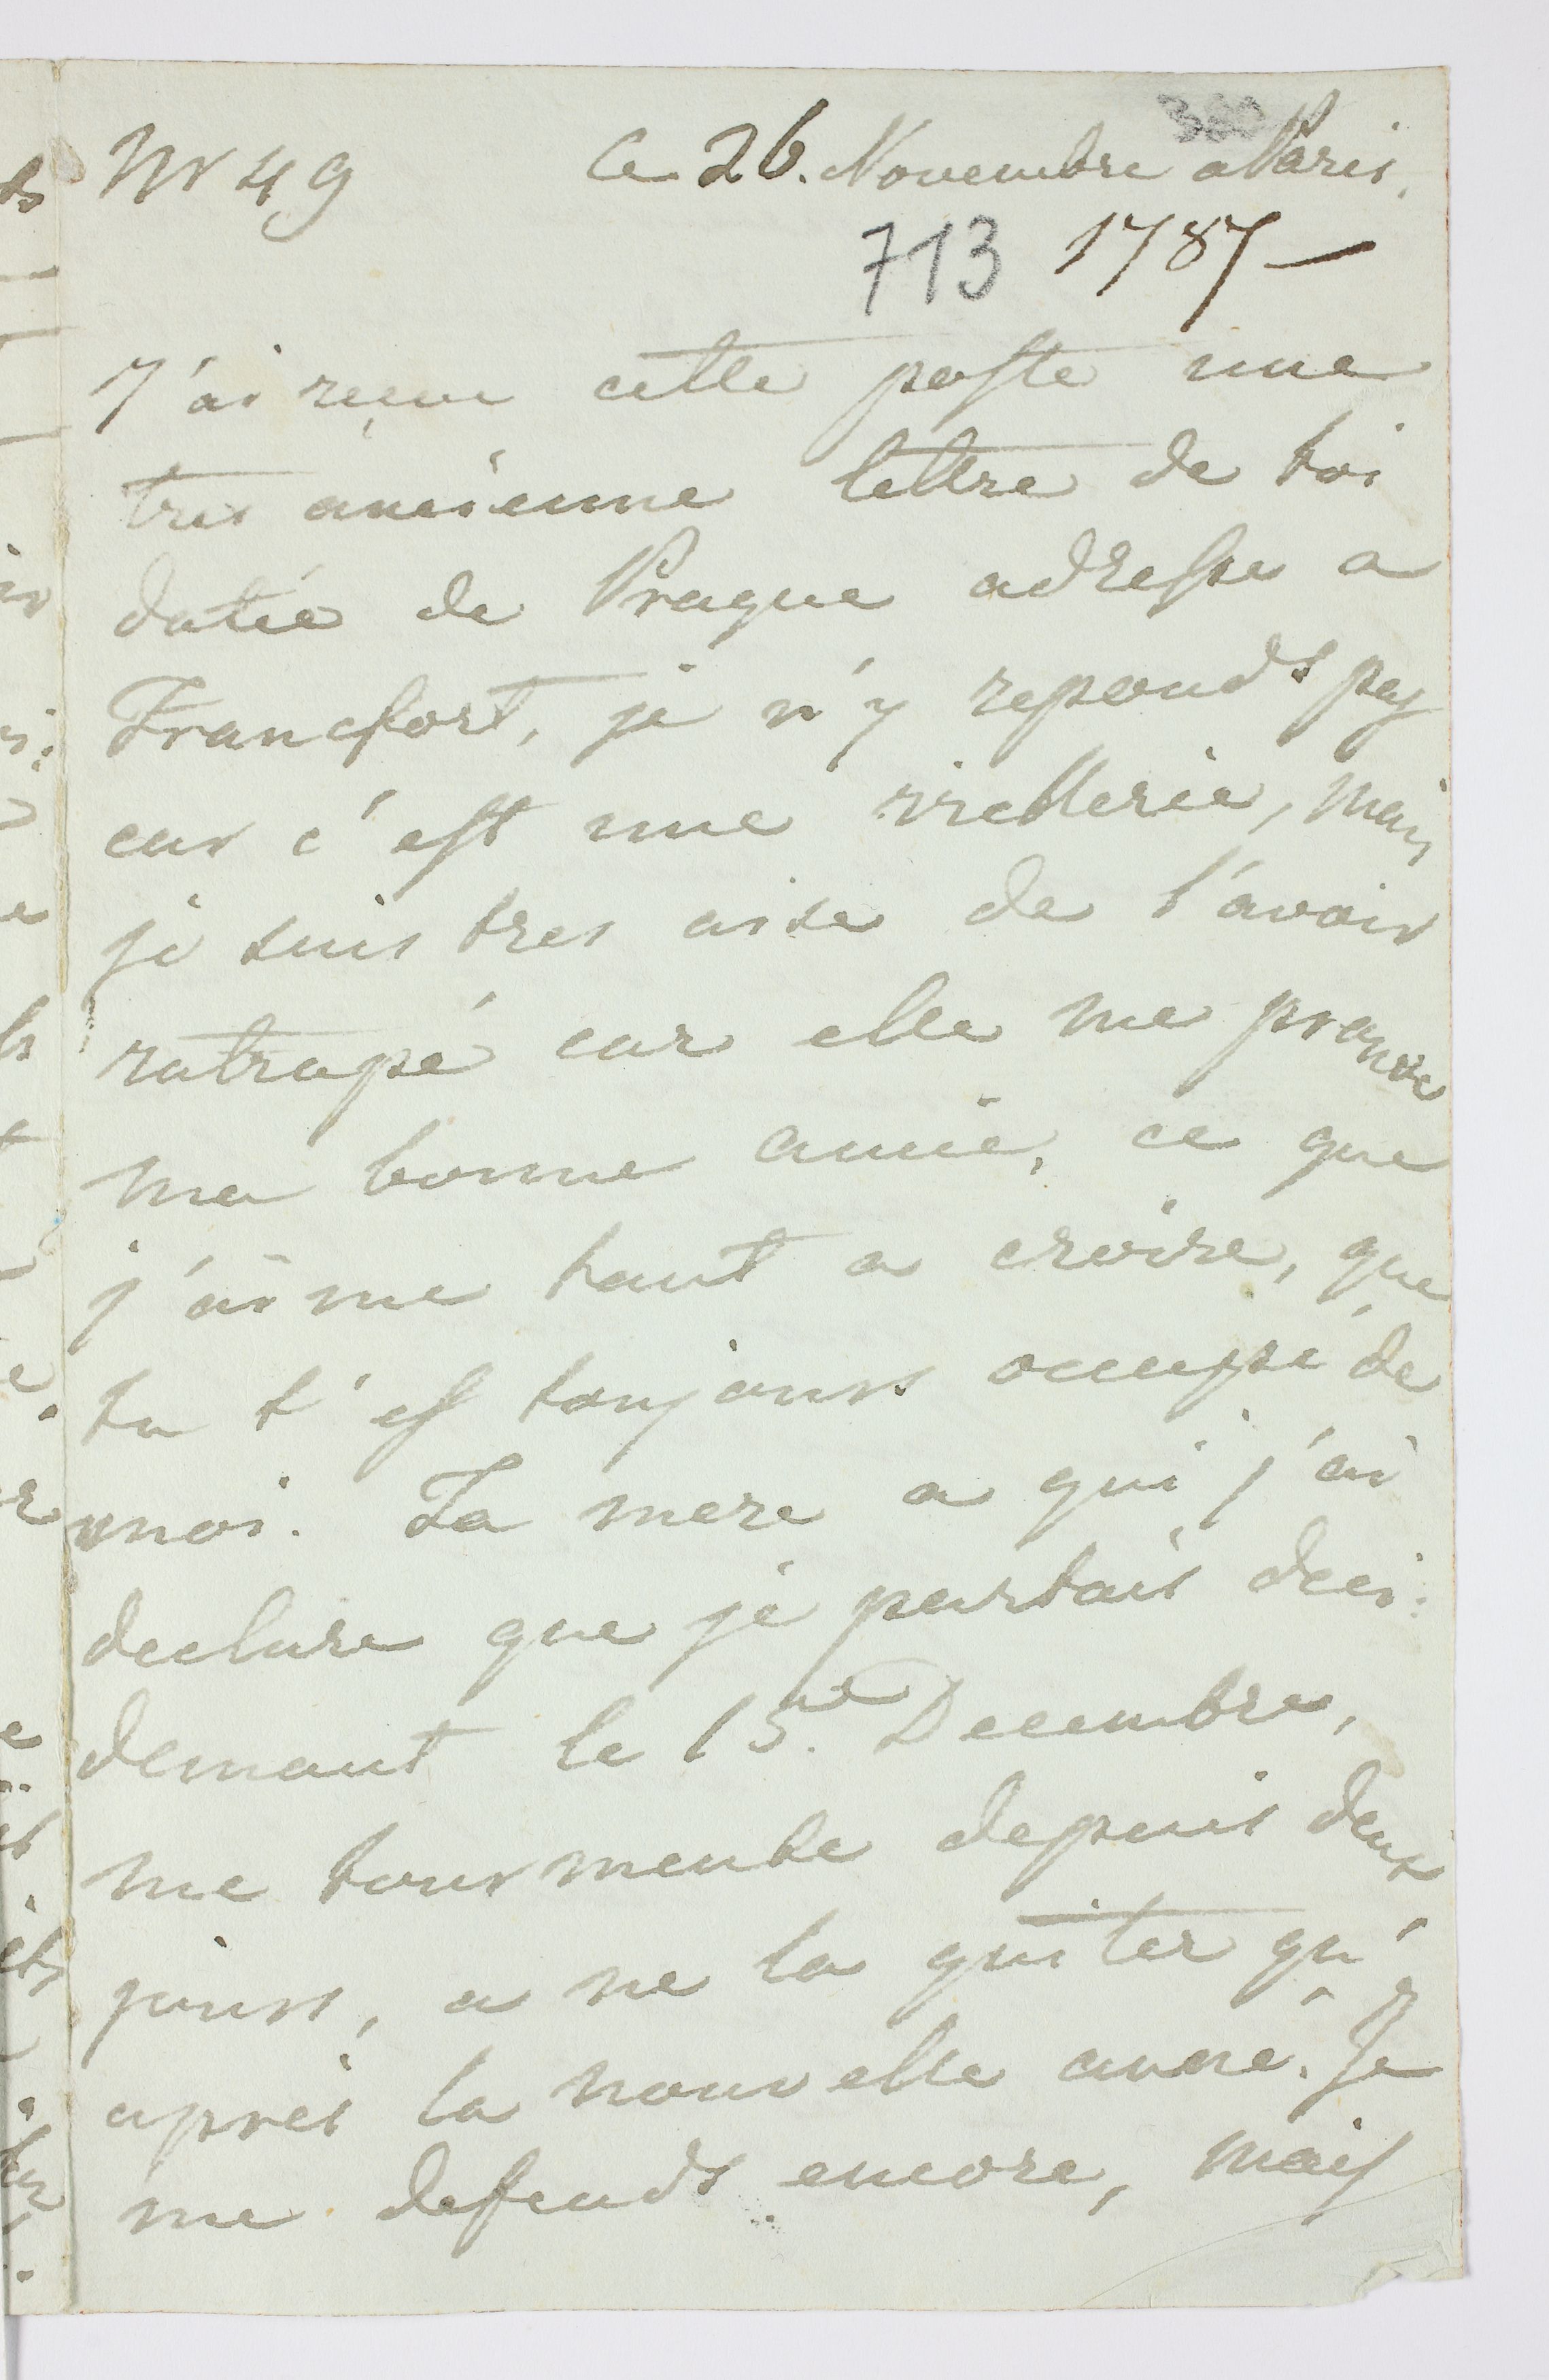 Nr 49 Ce 26. Novembre a Paris.
713 1787 —
J'ai reçue cette poste une
tres ancienne lettre de toi
datée de Prague adresse a
Francfort, je n'y reponds pas
car c'est une viellerie, mais
je suis tres aise de l'avoir
ratrapé car elle me prouve
ma bonne amie, ce que
j'aime tant a croire, que
tu t'es toujours occupé de
moi. Ta mere a qui j'ai
declare que je partais deci:
demant le 15. Decembre,
me tourmente depuis deux
jours, a ne la quiter qu'
après la nouvelle année. Je
me defends encore, mais